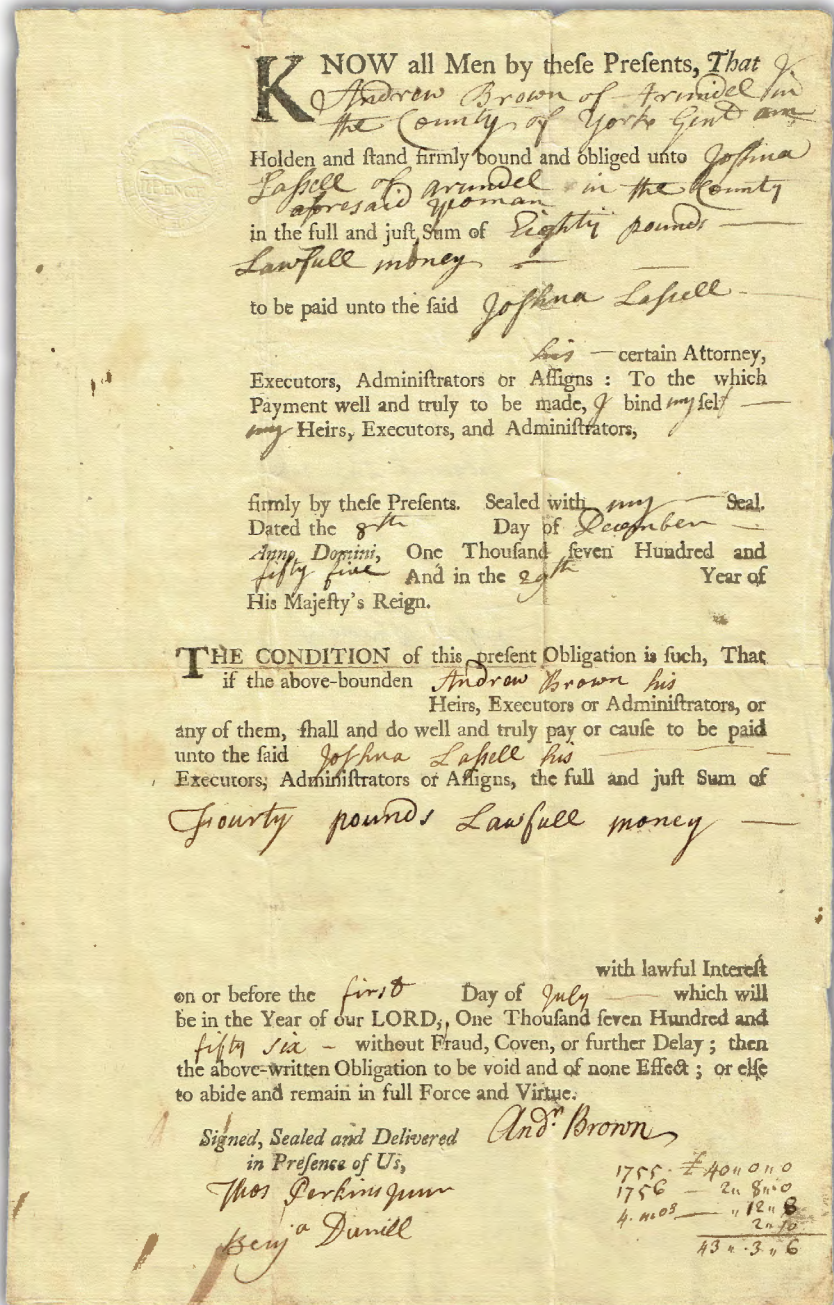 KNOW all Men by theſe Preſents, That I
Andrew Brown of Arundel in
the County of York Gent am
Holden and ſtand firmly bound and obliged unto Joſhua
Laſsell of arundel in the County
aforesaid yeoman
in the full and juſt Sum of Eighty pounds —
Lawfull money — —
to be paid unto the ſaid Joſhua Laſsell —
his — certain Attorney,
Executors, Adminiſtrators or Aſſigns : To the which
Payment well and truly to be made, I bind my ſelf —
my Heirs, Executors, and Adminiſtrators,
firmly by theſe Preſents. Sealed with my — Seal.
Dated the 8th Day of December —
Anno Domini, One Thouſand ſeven Hundred and
fifty five And in the 29th Year of
His Majeſty's Reign.
THE CONDITION of this preſent Obligation is ſuch, That
if the above-bounden Andrew Brown his
Heirs, Executors or Adminiſtrators, or
any of them, ſhall and do well and truly pay or cauſe to be paid
unto the ſaid Joſhua Laſsell his —
Executors, Adminiſtrators or Aſſigns, the full and juſt Sum of
Fourty pounds Lawfull money —
with lawful Intereſt
on or before the first Day of July — which will
be in the Year of our LORD, One Thouſand ſeven Hundred and
fifty six — without Fraud, Coven, or further Delay ; then
the above-written Obligation to be void and of none Effect ; or elſe
to abide and remain in full Force and Virtue.
Signed, Sealed and Delivered
in Preſence of Us,
Andr Brown
Thos Perkins Junr
Benja Durrill
1755 · £ 40 " 0 " 0
1756 — 2 " 8 " 0
4 mos — " 12 " 8
2 " 10
43 " 3 " 6